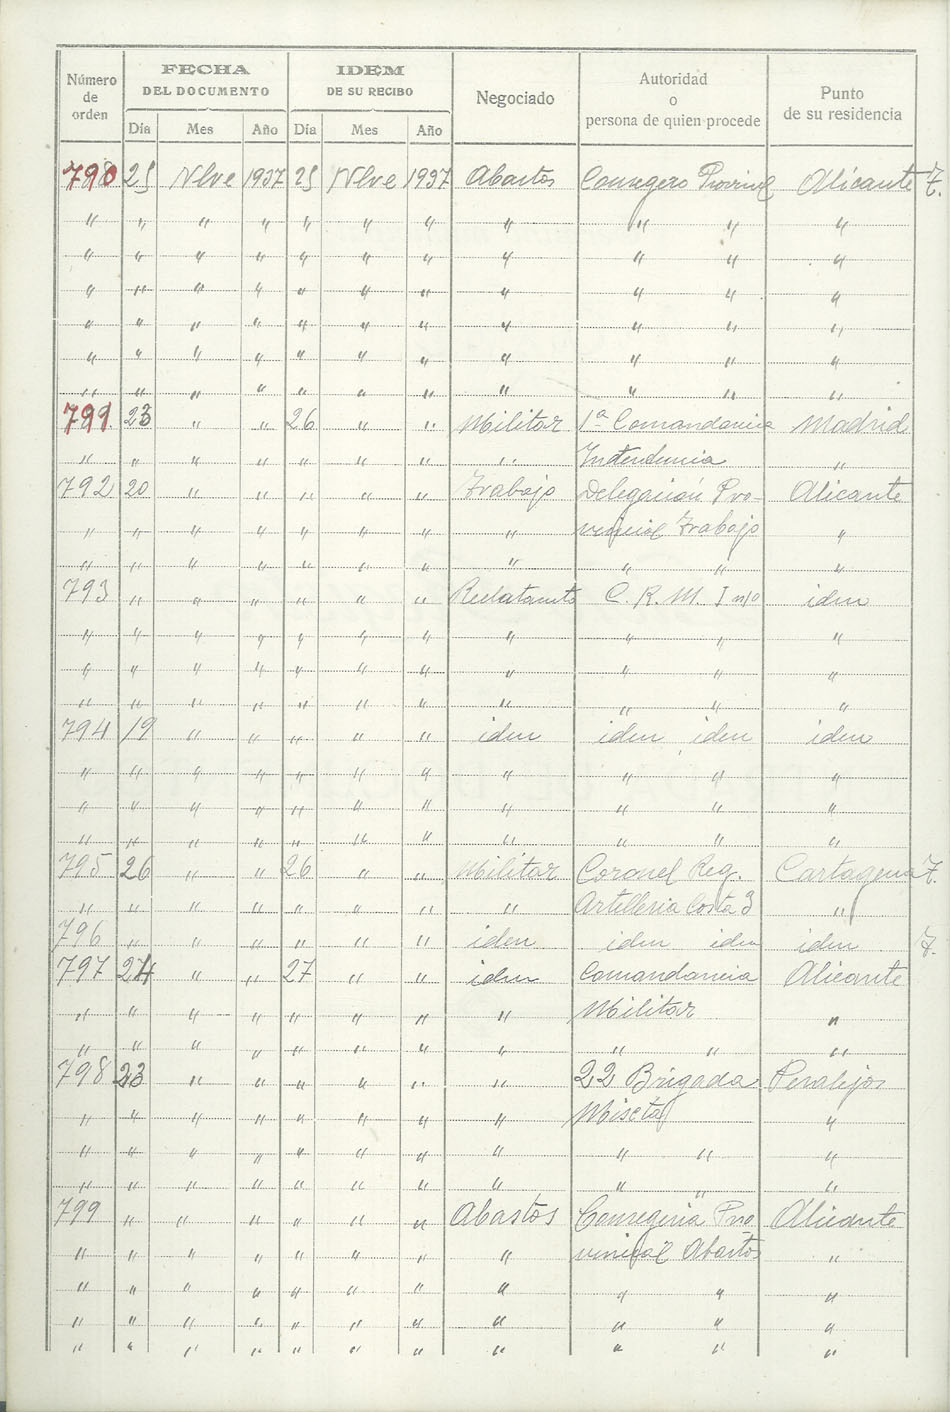 Número de orden FECHA DEL DOCUMENTO IDEM DE SU RECIBO Negociado Autoridad o persona de quien procede Punto de su residencia
Día Mes Año Día Mes Año
790 25 Nbre 1937 25 Nbre 1937 Abastos Consegero Provincl Alicante T.
" " " " " " " " " " "
" " " " " " " " " " "
" " " " " " " " " " "
" " " " " " " " " " "
" " " " " " " " " " "
" " " " " " " " " " "
791 23 " " 26 " " Militar 1ª Comandancia Madrid
" " " " " " " " Intendencia "
792 20 " " " " " Trabajo Delegación Pro- Alicante
" " " " " " " " vincial Trabajo "
" " " " " " " " " " "
793 " " " " " " Reclutamto C. R. M. I nº idem
" " " " " " " " " " "
" " " " " " " " " " "
" " " " " " " " " " "
794 19 " " " " " idem idem idem idem
" " " " " " " " " " "
" " " " " " " " " " "
" " " " " " " " " " "
795 26 " " 26 " " Militar Coronel Reg. Cartagena T.
" " " " " " " " Artilleria Costa 3 "
796 " " " " " " idem idem idem idem T.
797 24 " " 27 " " idem Comandancia Alicante
" " " " " " " " Militar "
" " " " " " " " " " "
798 23 " " " " " " 22 Brigada Peralejos
" " " " " " " " Miscta "
" " " " " " " " " " "
" " " " " " " " " " "
799 " " " " " " Abastos Consegeria Pro- Alicante
" " " " " " " " vincial Abastos "
" " " " " " " " " " "
" " " " " " " " " " "
" " " " " " " " " " "